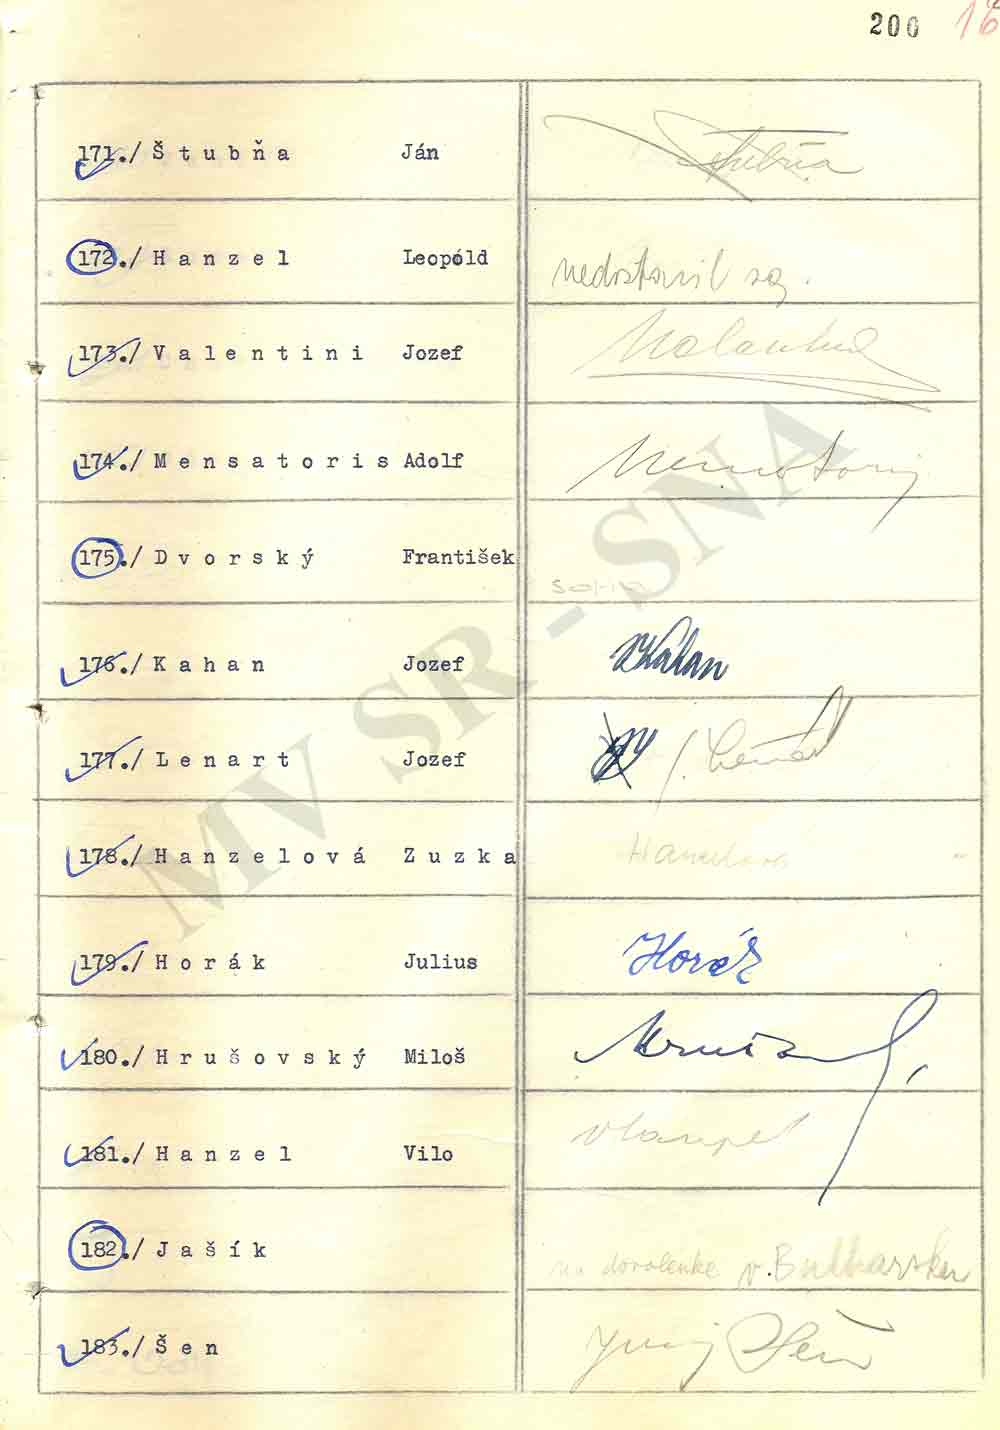 200 16
171./ Štubňa Ján Štubňa
172./ Hanzel Leopóld nedostavil sa.
173./ Valentini Jozef
174./ Mensatoris Adolf
175./ Dvorský František
176./ Kahan Jozef Kahan
177./ Lenart Jozef J. Lenárt
178./ Hanzelová Zuzka Hanzelová
179./ Horák Julius Horák
180./ Hrušovský Miloš
181./ Hanzel Vilo
182./ Jašík na dovolenke v. Bulharsku
183./ Šen Juraj Šen
MV SR - SNA